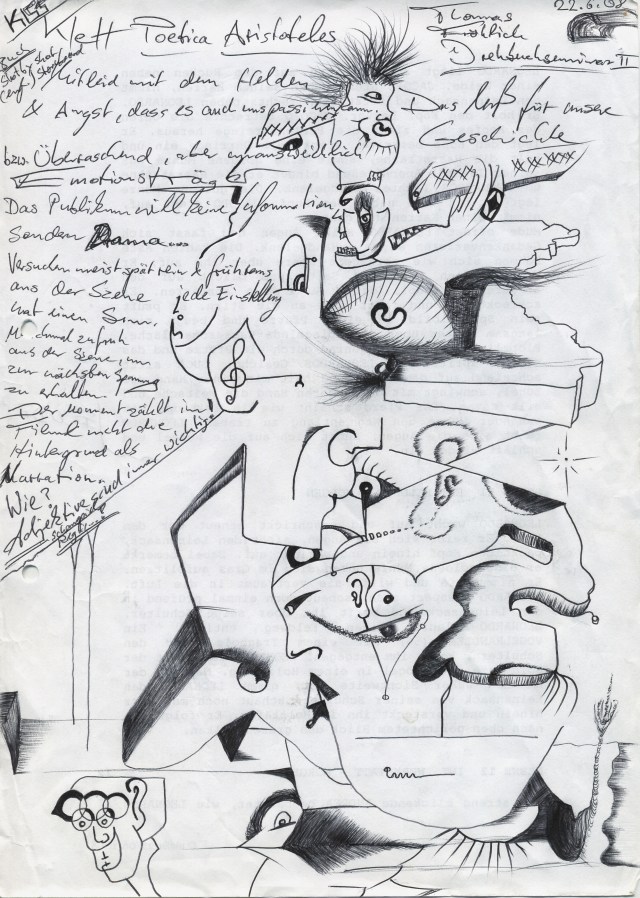 KISS
22.6.08
Klett Poetica Aristoteles
Thomas
Fröhlich
Drehbuchseminar II
Mitleid mit dem Helden
& Angst, dass es auch uns passieren kann.
Das Muß für unsere
Geschichte
bzw. Überraschend, aber unausweichlich
Emotionsträger
Das Publikum will keine Information
Sondern Drama...
Versuchen meist spät rein & früh raus
aus der Szene jede Einstellung
hat einen Sinn.
Manchmal zu früh
aus der Szene, um
zur nächsten Spannung
zu erhalten.
Der Moment zählt im
Film & nicht die
Hintergrund als
Narration.
Wie?
Adjektive sind immer wichtig!